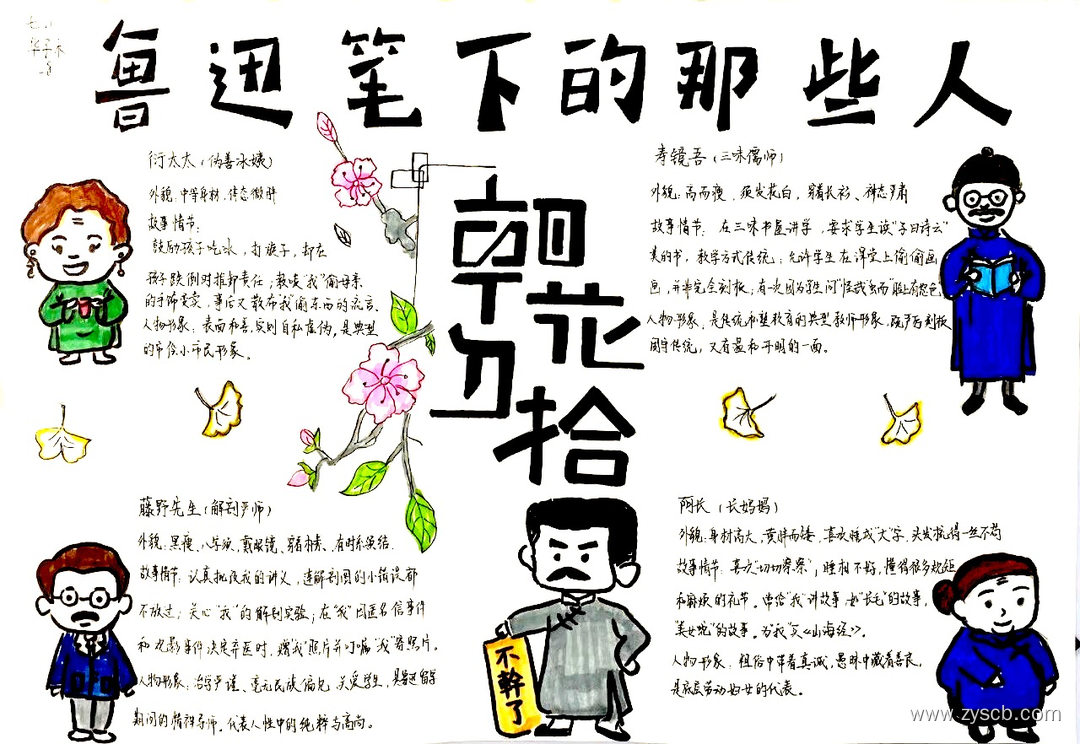 鲁迅笔下的那些人
朝花夕拾
衍太太(伪善冰姨)
外貌:中等身材,体态微胖
故事情节:
鼓励孩子吃冰,打旋子,却在
孩子跌倒时推卸责任;教唆"我"偷母亲
的手饰变卖,事后又散布我偷东西的流言.
人物形象:表面和善,实则自私虚伪,是典型
的市侩小市民形象。
寿镜吾(三味儒师)
外貌:高而瘦、须发花白、穿着长衫、神态严肃
故事情节:在三味书屋讲学,要求学生读"子曰诗云"
类的书,教学方式传统;允许学生在课堂上偷偷画
画,并非完全刻板;有一次因学生问"怪哉"虫而脸上有怒色
人物形象:是传统私塾教育的典型教师形象,既严厉刻板
固守传统,又有温和开明的一面。
藤野先生(解剖严师)
外貌:黑瘦、八字须、戴眼镜、穿着朴素、有时忘领结.
故事情节:认真批改我的讲义,连解剖图的小错误都
不放过;关心"我"的解剖实验;在"我"因匿名信事件
和电影事件决定弃医时,赠"我"照片并叮嘱"我"寄照片.
人物形象:治学严谨、毫无民族偏见、关爱学生,是鲁迅留学
期间的精神导师.代表人性中的纯粹与高尚。
阿长(长妈妈)
外貌:身材高大、黄胖而矮、喜欢睡成"大"字、头发梳得一丝不苟
故事情节:喜欢"切切察察";睡相不好,懂得很多规矩
和麻烦的礼节。曾给"我"讲故事如"长毛"的故事,
"美女蛇"的故事。为我买《山海经》.
人物形象:粗俗中带着真诚、愚昧中藏着善良,
是底层劳动妇女的代表。
不幹了
www.zyscb.com